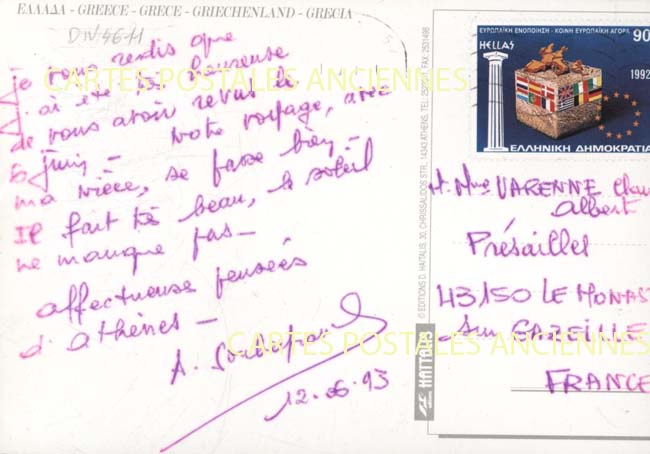 ΕΛΛΑΔΑ - GREECE - GRECE - GRIECHENLAND - GRECIA
DIV4611
je vous redis que
j'ai été très heureuse
de vous avoir revus le
6 juin - Notre voyage, avec
ma nièce, se passe bien -
Il fait très beau, le soleil
ne manque pas -
affectueuses pensées
d'athènes -
A.
12.06.93
CARTES POSTALES ANCIENNES
CARTES POSTALES ANCIENNES
© EDITIONS D. HAITALIS, 30, CHRISSALIDOS STR., 14343 ATHENS, TEL. FAX: 2531498
HAITALIS
ΕΥΡΩΠΑΪΚΗ ΕΝΟΠΟΙΗΣΗ - ΚΟΙΝΗ ΕΥΡΩΠΑΪΚΗ ΑΓΟΡΑ
90
HELLAS
1992
ΕΛΛΗΝΙΚΗ ΔΗΜΟΚΡΑΤΙΑ
Mme VARENNE
Albert
Présailles
43150 LE MONAS
Sur GAZEILLE
FRANCE